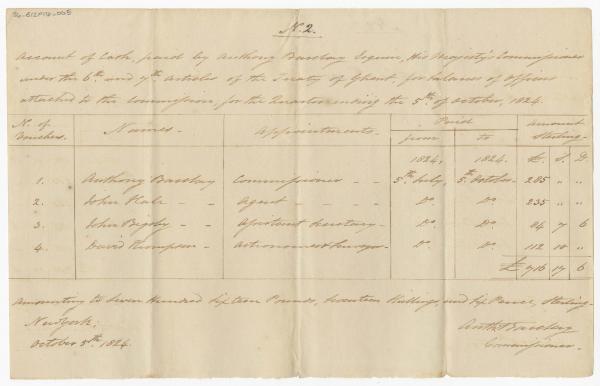 N. 2.
Account of Cash, paid by Anthony Barclay Esquire, His Majesty's Commissioner
under the 6th and 7th Articles of the Treaty of Ghent, for Salaries of Officers
attached to the Commission, for the Quarter ending the 5th of October, 1824.
No. of Vouchers. Names. Appointments. Paid Amount Sterling.
from to
1824. 1824. £. S. D
1. Anthony Barclay Commissioner 5th July, 5th October 285 " "
2. John Hale Agent Do. Do. 235 " "
3. John Bigsby Assistant Secretary Do. Do. 84 7 6
4. David Thompson Astronomer & Surveyor Do. Do. 112 10 "
£ 716 17 6
Amounting to Seven Hundred Sixteen Pounds, Seventeen Shillings, and Six Pence, Sterling.
New York,
October 5th. 1824.
Anth. Barclay
Commissioner.